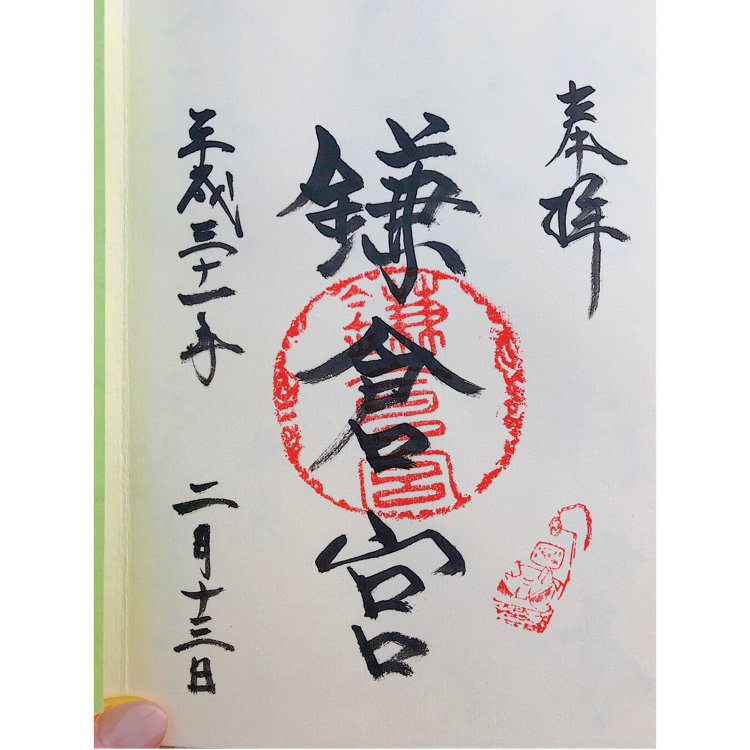 奉拝
鎌倉宮
平成三十一年 二月十三日
鎌倉宮